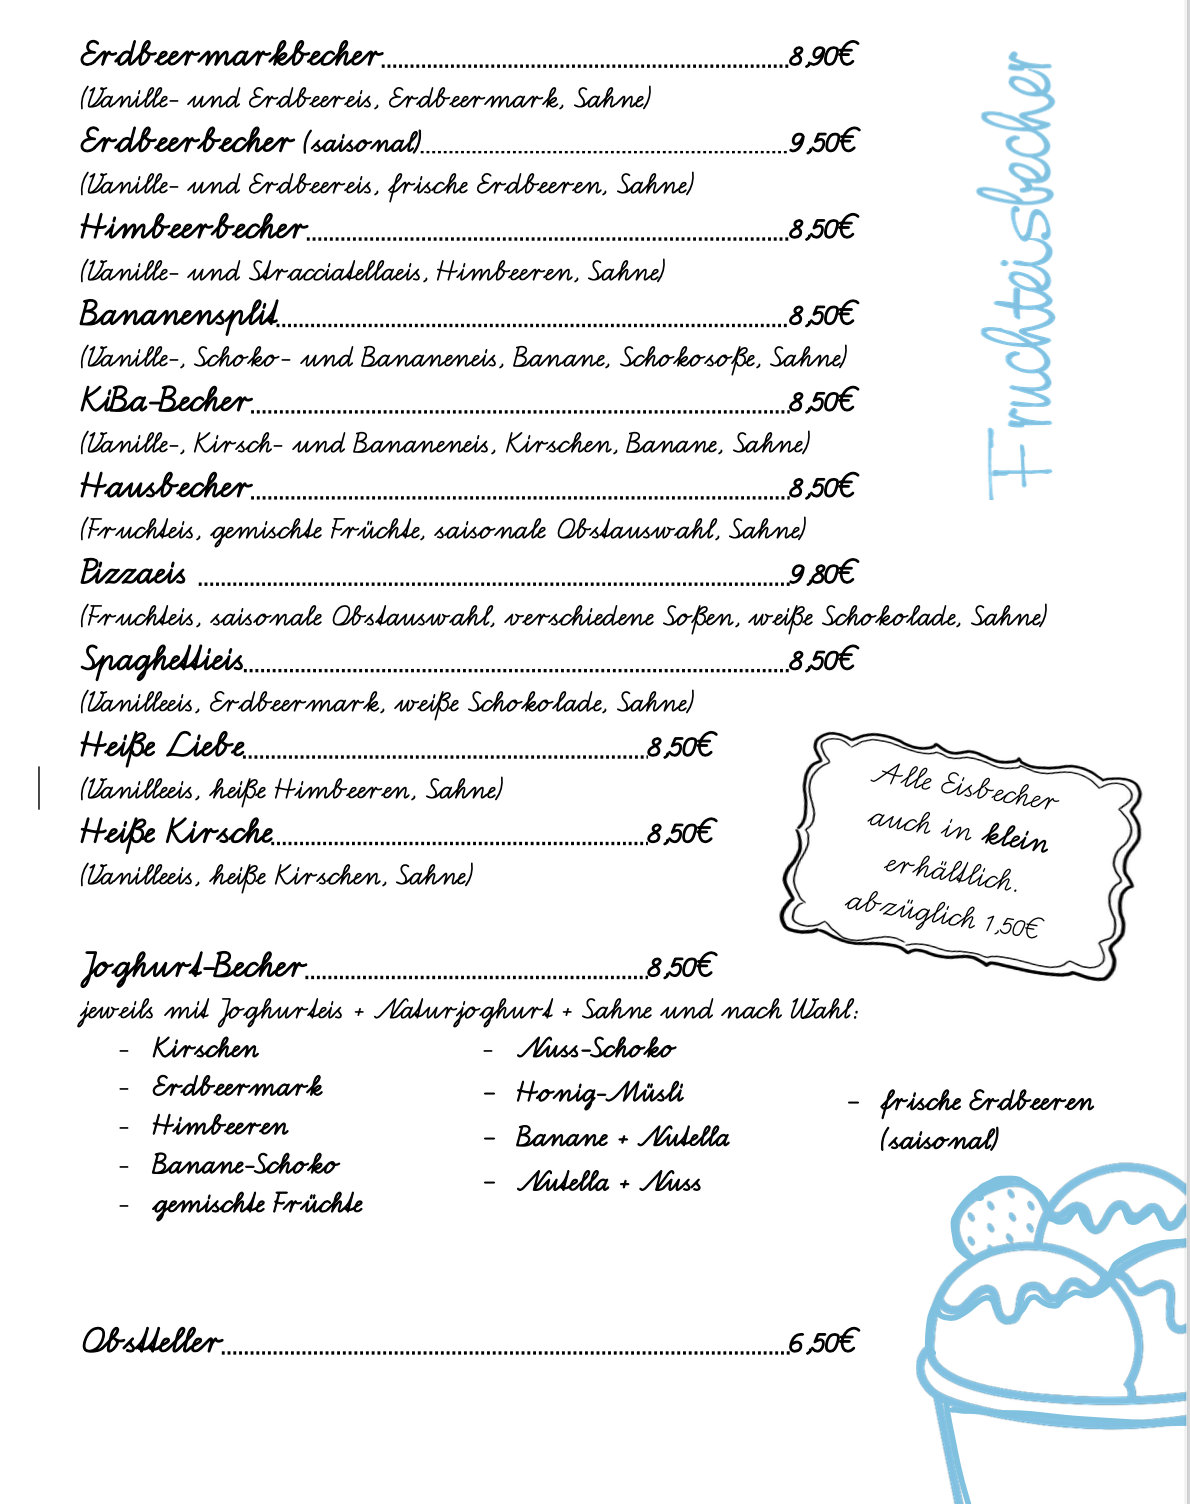 Fruchteisbecher
Erdbeermarkbecher........................8,90€
(Vanille- und Erdbeereis, Erdbeermark, Sahne)
Erdbeerbecher (saisonal)........................9,50€
(Vanille- und Erdbeereis, frische Erdbeeren, Sahne)
Himbeerbecher........................8,50€
(Vanille- und Stracciatellaeis, Himbeeren, Sahne)
Bananensplit........................8,50€
(Vanille-, Schoko- und Bananeneis, Banane, Schokosoße, Sahne)
KiBa-Becher........................8,50€
(Vanille-, Kirsch- und Bananeneis, Kirschen, Banane, Sahne)
Hausbecher........................8,50€
(Fruchteis, gemischte Früchte, saisonale Obstauswahl, Sahne)
Pizzaeis ........................9,80€
(Fruchteis, saisonale Obstauswahl, verschiedene Soßen, weiße Schokolade, Sahne)
Spaghettieis........................8,50€
(Vanilleeis, Erdbeermark, weiße Schokolade, Sahne)
Heiße Liebe........................8,50€
(Vanilleeis, heiße Himbeeren, Sahne)
Heiße Kirsche........................8,50€
(Vanilleeis, heiße Kirschen, Sahne)
Alle Eisbecher
auch in klein
erhältlich.
abzüglich 1,50€
Joghurt-Becher........................8,50€
jeweils mit Joghurteis + Naturjoghurt + Sahne und nach Wahl:
- Kirschen
- Erdbeermark
- Himbeeren
- Banane-Schoko
- gemischte Früchte
- Nuss-Schoko
- Honig-Müsli
- Banane + Nutella
- Nutella + Nuss
- frische Erdbeeren
(saisonal)
Obstteller........................6,50€